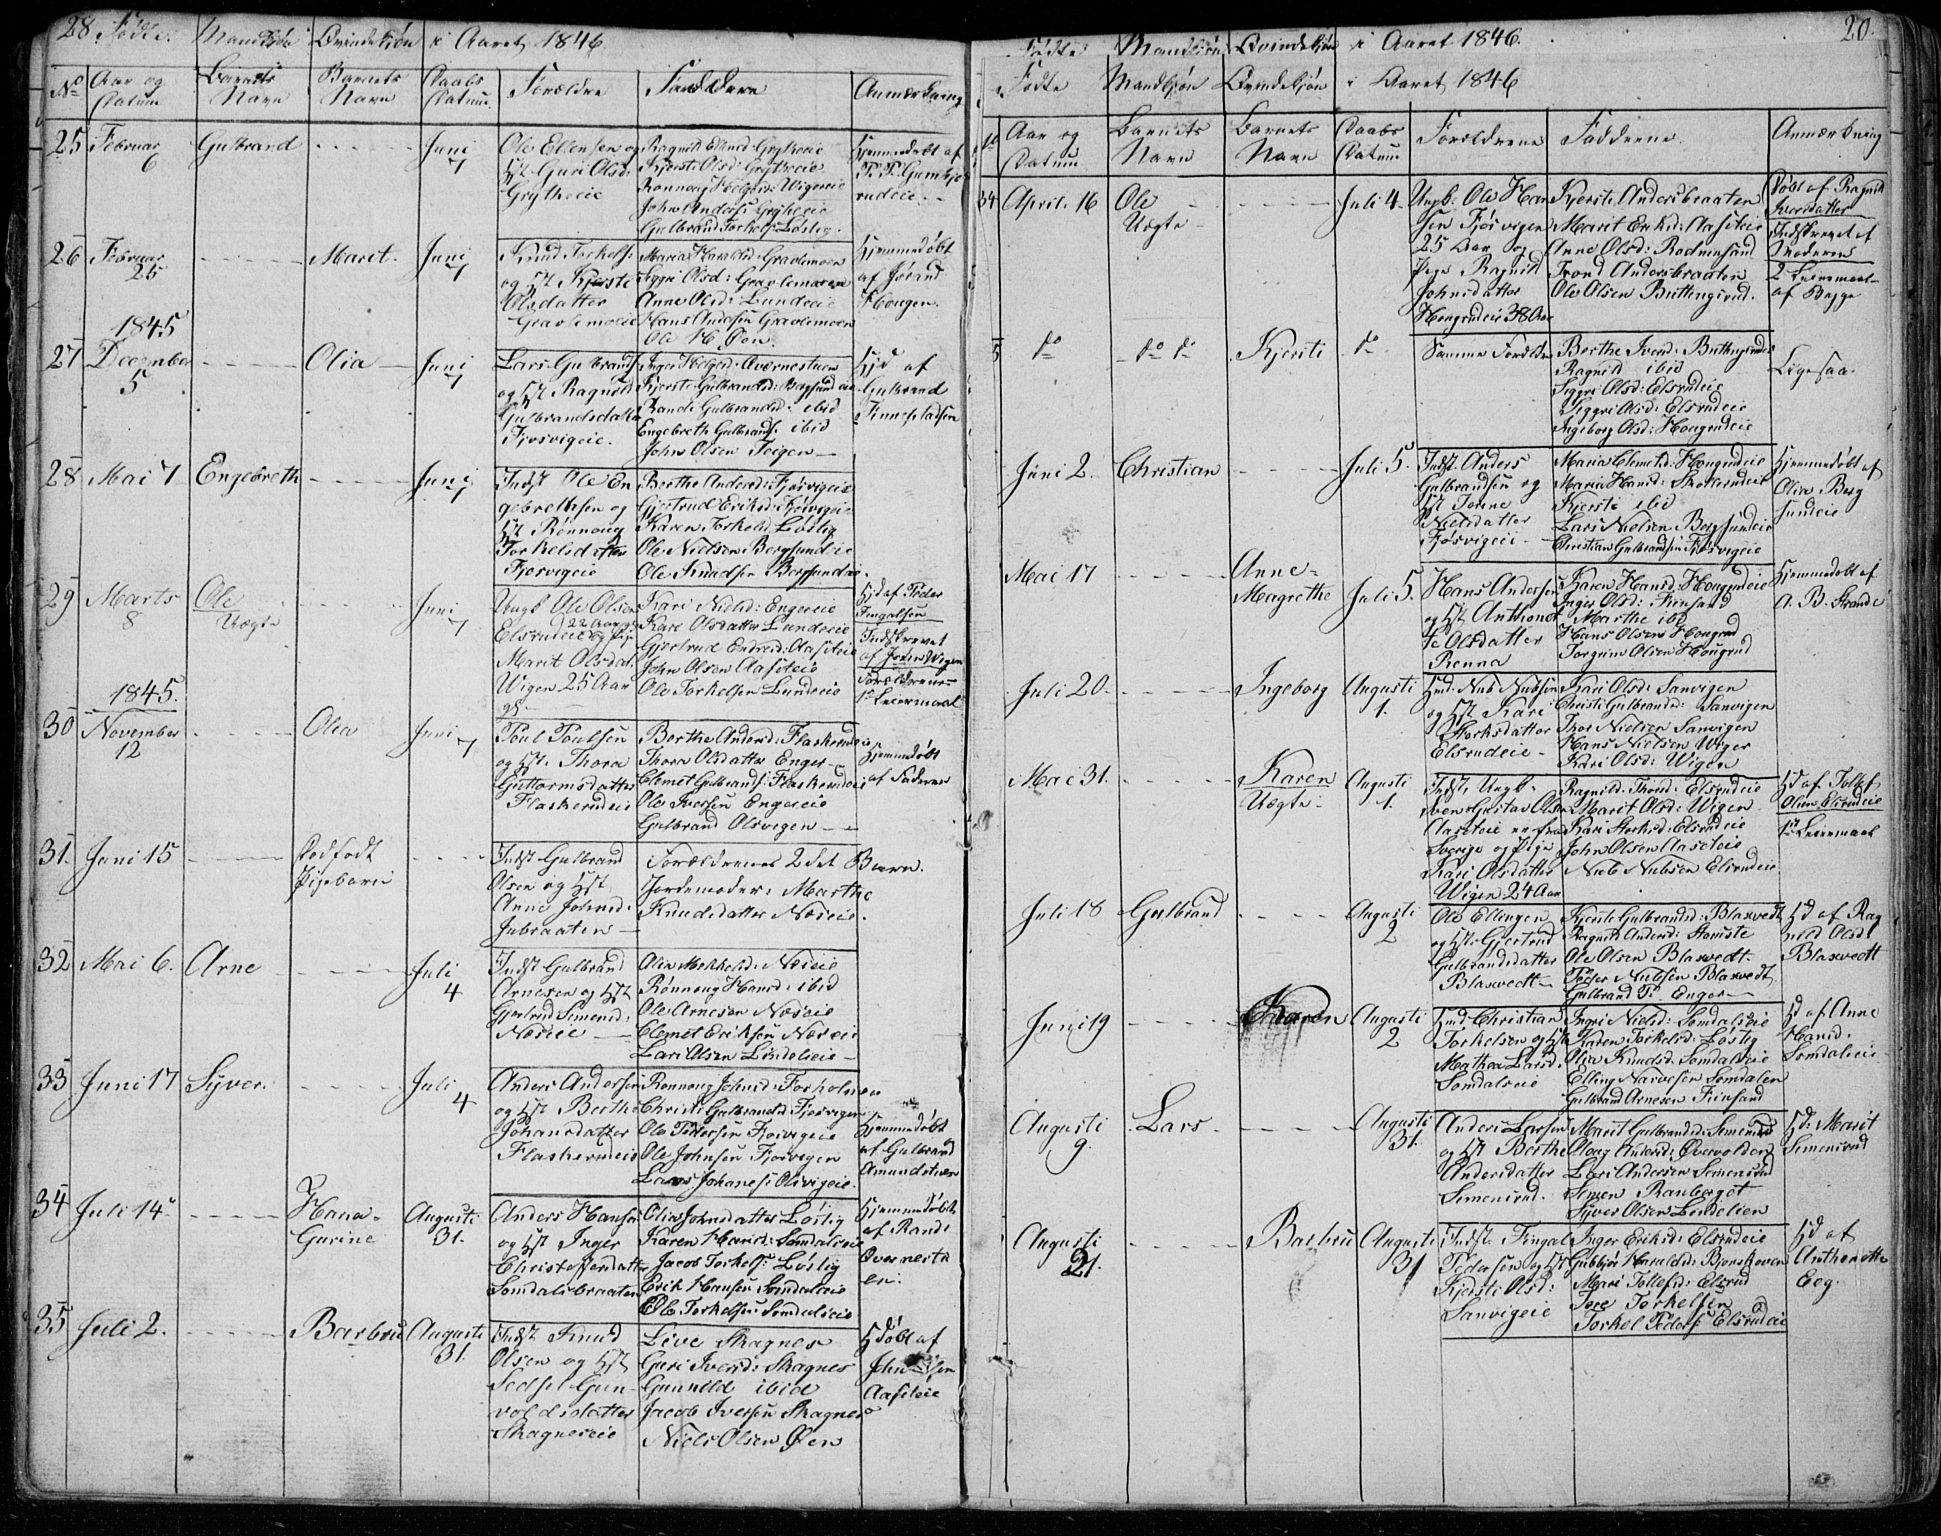 28. Fødte. Mandkjøn Qvindekjøn i Aaret 1846.
No
Aar og Datum
Barnets Navn
Barnets Navn
Daabs Datum
Forældre
Faddere
Anmærkning
25 Februar 6
Gulbrand
Juni 7
Ole Ellensen og
Hst Guri Olsd:
Grytheeie
Ragnild Ellend: Grytheeie
Kjersti Olsd: Grytheeie
Rønnoug Helgesd: Wigeseie
John Anders: Grytheeie
Gulbrand Torkels: Løstig.
Hjemmedøbt af
26 Februar 25
Marit.
Juni 7
Knud Torkels:
og Hst Kjersti
Olsdatter
Gravlimoeie
Maria Haraldsd: Gravlemoen
Siggri Olsd: Gravlemoeie
Anne Olsd: Lundeeie
Hans Andersen Gravlemoen
Ole H. Øen.
Hjemmedøbt
af Jørand
Hougen.
1845
27 December 5
Olia
Juni 7
Lars Gulbrands:
og Hst Ragnild
Gulbrandsdatter
Fjøsvigeie.
Inger Helgesd: Qværnestuen
Kjersti Gulbrandsd: Bergsundeie
Randi Gulbrandsd: ibid
Engebreth Gulbrands: ibid
John Olsen Teigen
Hjd af
Gulbrand
Finnepladsen
28 Mai 7
Engebreth
Juni 7
Indst Ole En
gebrethsen og
Hst Rønnoug
Torkelsdatter
Fjøsvigeie
Berthe Andersd: Fjøsvigeie
Gjertrud Eriksd: Fjøsvigeie
Karen Torkelsd: Løstig
Ole Nielsen Bergsundeie
Ole Knudsen Bergsundeie
29 Marts 8
Ole
Uægte
Juni 7
Ungk Ole Olsen
Elsrudeie 22 Aar og Pige
Marit Olsdat.
Wigen 25 Aar
gl:
Kari Nielsd: Engereie
Kari Olsdatter Lundeeie
Gjertrud Endresd: Aaseteie
John Olsen Aaseteie
Ole Torkelsen Lundeeie
Hjd af Peder
Fingalsen
Indskrevet
af Jorden Wigen
Forældrenes
1ste Leiermaal
1845.
30 November 12
Olia
Juni 7
Poul Poulsen
og Hst. Thora
Guttormsdatter
Flaskerudeie
Berthe Andersd: Flaskerudeie
Thora Olsdatter Enger
Clemet Gulbrands: Flaskerudeie
Ole Iversen Engereie
Gulbrand Olsvigen
Hjemmedøbt
af Faderen
31. Juni 15
Dødfødt
Pigebarn
Indst Gulbrand
Olsen og Hst
Anne Johnsd:
Jubraaten
Forældrenes 2det Barn.
Jordemoder: Marthe
Knudsdatter Næseie.
32 Mai 6.
Arne
Juli 4
Indst Gulbrand
Arnesen og Hst
Gjertrud Simensd:
Næseie
Olia Mekkelsd: Næseie
Rønnoug Hansd: ibid
Ole Arnesen Næseie
Clemet Eriksen Næseie
Lars Olsen Lindelieie
33 Juni 17
Syver.
Juli 4
Anders Andersen
og Hst Berthe
Johansdatter
Flaskerudeie
Rønnoug Johnsd: Forholmen
Christi Gulbrandsd: Fjøsvigen
Ole Pedersen Fjøsvigeie
Ole Johnsen Fjøsvigen
Lars Johanes: Olsvigeie.
Hjemmedøbt
af Gulbrand
Amundstuen
34 Juli 14
Hana-
Gurine
Augusti 31.
Anders Hansen
og Hst Inger
Christoffersdatter
Somdalsbraaten
Olia Johnsdatter Løstig
Karen Hansd: Somdalseie
Jacob Torkels: Løstig
Erik Hansen Somdalseie
Ole Torkelsen Somdalseie
Hjemmedøbt
af Randi
Qvernestu
en.
35 Juli 2.
Barbru
Augusti 31.
Indst Knud
Olsen og Hst
Sedsel Gun-
voldsdatter
Skagneseie
Live Skagnes
Guri Iversd: Skagnes
Gunnild ibid
Jacob Iversen Skagnes
Niels Olsen Øen
Hjdøbt af
Aaseteie
20.
Fødte Mandkjøn Qvindekjøn i Aaret 1846.
Fødte Mandkjøn Qvindekjøn i Aaret 1846
No
Aar og Datum
Barnets Navn
Barnets Navn
Daabs Datum
Forældrene
Fadderne
Anmærkning
34 April 16
Ole
Uægte
Juli 4
Ungk: Ole Han
sen Fjøsvigen
25 Aar og
Pige Ragnild
Johnsdatter
Hougrudeie 38 Aar
Kjersti Andersbraaten
Marit Eriksd: Aaseteie
Anne Olsd: Rodninsand
Trond Andersbraaten
Ole Olsen Buttingsrud.
Døbt af Ragnild
Iversdatter
Indskrevet af
Moderen
2 Leiermaal
af Begge
5 do
do do
Kjersti
do
Samme Forældre
Berthe Iversd: Buttingsrud
Ragnild ibid
Siggri Olsd: Elsrudeie
Siggri Olsd: Elsrudeie
Ingeborg Olsd: Hougrudeie
Ligesaa.
Juni 2.
Christian
Juli 5.
Indst. Anders
Gulbrandsen og
Hst Tonne
Nielsdatter
Fjøsvigeie
Maria Clemetsd: Hougrudeie
Maria Hansd: Skollerudeie
Kjersti ibid
Lars Nielsen Bergsundeie
Christian Gulbrandsen Fjøsvigeie
Hjemmedøbt af
Olia Berg
sundeie
Mai 17
Anne-
Magrethe
Juli 5.
Hans Andersen
og Hst Anthonet
te Olsdatter
Renna
Karen Hansd: Hougrudeie
Inger Olsd: Finsand
Marthe ibid
Hans Olsen Hougrud
Torgrim Olsen Hougrud
Hjemmedøbt af
A. B. Strande
Juli 20.
Ingeborg
Augusti 1.
Hmd. Nub Nubsen
og Hst Kari
Storksdatter
Elsrudeie
Kari Olsd: Sanvigen
Christi Gulbrandsd: Sanvigen
Thor Nielsen Sanvigen
Hans Nielsen Wiger
Kari Olsd: Wigen
Mai 31.
Karen
Uægte
Augusti 1.
Indst. Ungk.
Sven Gustav Olsen
Aaseteie er fra
Sverige og Pige
Kari Olsdatter
Wigen 24 Aar
Ragnild Thond: Elsrudeie
Marit Olsd: Wigen
Kari Storksd: Elsrudeie
John Olsen Aaseteie
Nub Nubsen Elsrudeie
Hd af Tollef
Olsen Elsrudeie
1ste Leiermaal
Juli 18
Gulbrand
Augusti 2
Ole Ellingen
og Hst. Gjertrud
Gulbrandsdatter
Blaxvedt
Kjersti Gulbrandsd: Blaxvedt
Ragnild Andersd: Homste
Ole Olsen Blaxvedt
Peder Nubsen Blaxvedt
Gulbrand P. Enger
Hd af Rag
nild Olsd:
Blaxvedt
Juni 19
Karen
Augusti 2
Hmd. Christian
Torkelsen og Hst
Mathea Larsd:
Somdalseie
Ingri Nielsd: Somdalseie
Karen Torkelsd: Løstig
Olia Knudsd: Somdalseie
Elling Narvesen Somdalen
Gulbrand Arnesen Finsand
Hd af Anne
Hansd:
Somdalseie
Augusti 9.
Lars
Augusti 31.
Anders Larsen
og Hst Berthe
Andersdatter
Simensrud.
Marit Gulbrandsd: Simensrud
Oloug Andersd: Øvervolden
Lars Andersen Simensrud
Simen Ranberget
Syver Olsen Lindelien
Hd: Marit
Simensrud
Augusti 21.
Barbru
Augusti 31
Indst. Fingal
Pedersen og Hst
Kjersti Olsd:
Sanvigeie
Inger Eriksd: Elsrudeie
Gubbjør Haraldsd: Bjørnehoven
Mari Tollefsd: Elsrud
Tore Torkelsen
Torkel Peders: Elsrudeie
Hd af
Anthonette
Eeg.